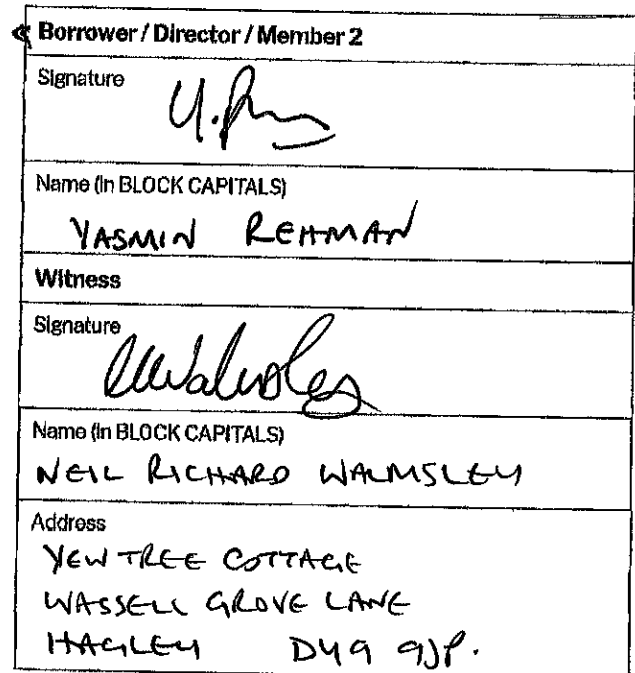 Borrower / Director / Member 2
Signature
Y.
Name (in BLOCK CAPITALS)
YASMIN REHMAN
Witness
Signature
Name (in BLOCK CAPITALS)
NEIL RICHARD WALMSLEY
Address
YEW TREE COTTAGE
WASSELL GROVE LANE
HAGLEY DY9 9JP.